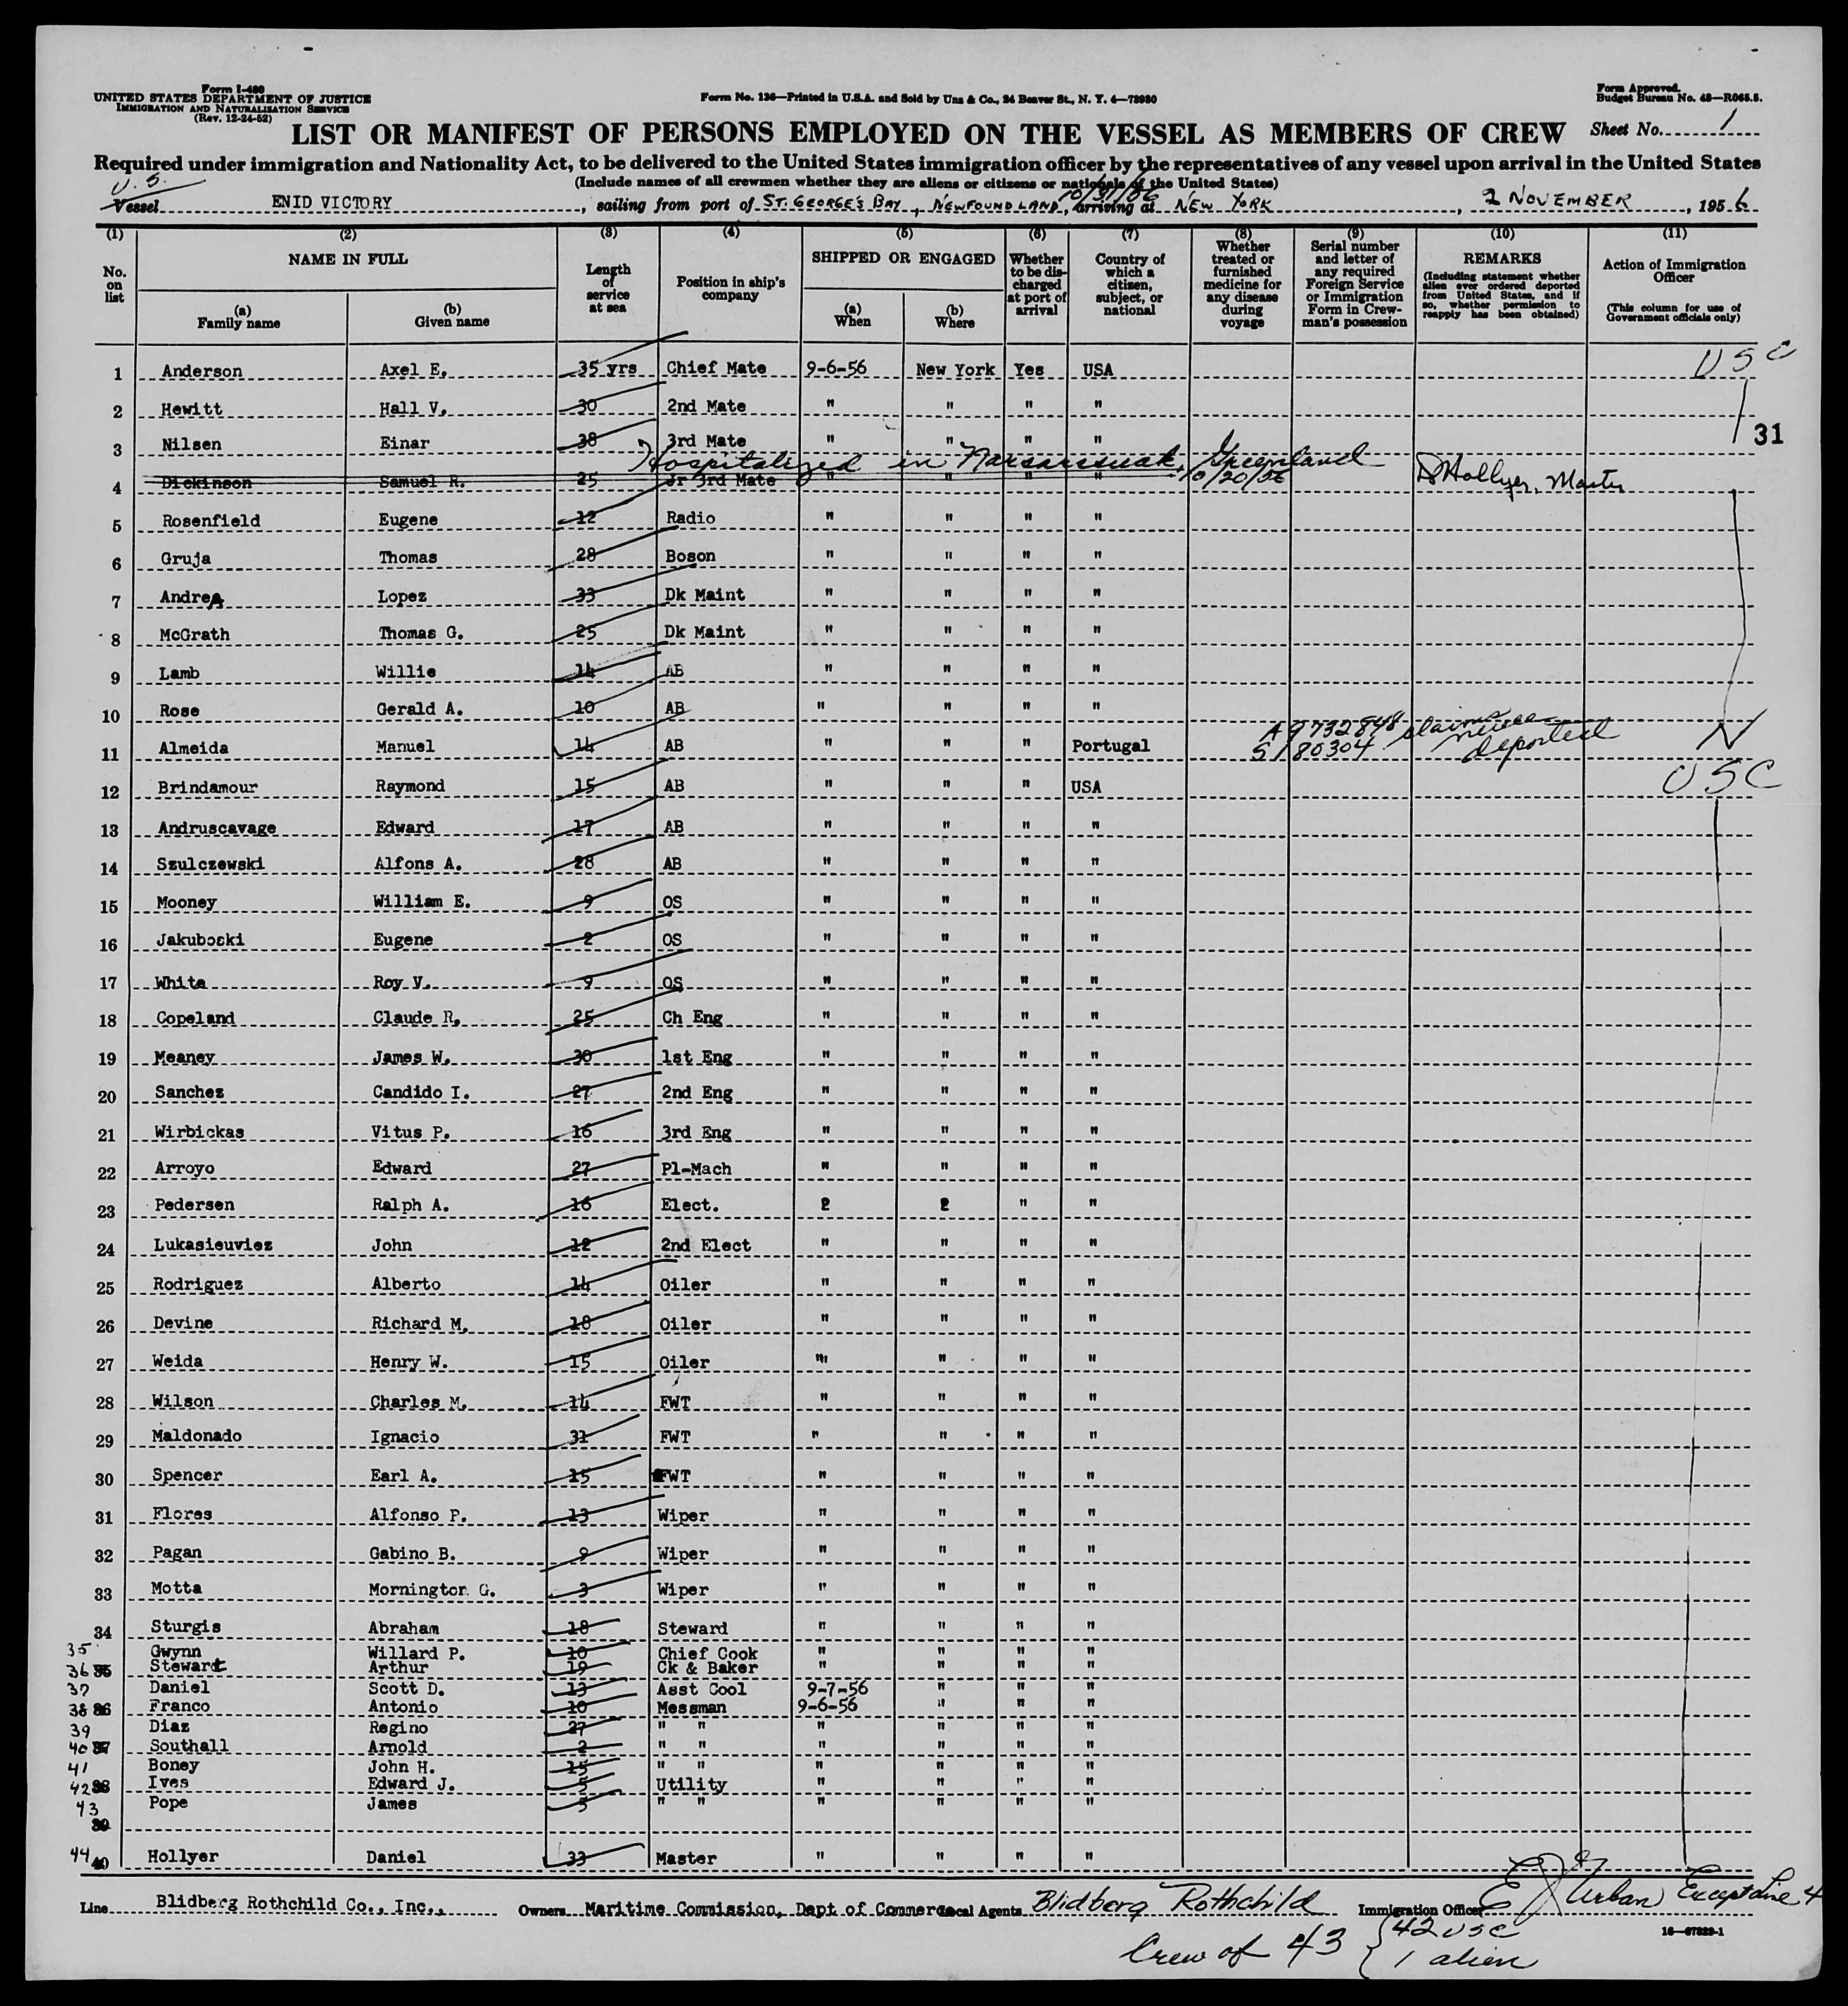 Form I-480
UNITED STATES DEPARTMENT OF JUSTICE
IMMIGRATION AND NATURALIZATION SERVICE
(Rev. 12-24-52)
Form No. 136—Printed in U.S.A. and Sold by Unz & Co., 24 Beaver St., N. Y. 4—73930
Form Approved.
Budget Bureau No. 43—R065.5.
LIST OR MANIFEST OF PERSONS EMPLOYED ON THE VESSEL AS MEMBERS OF CREW Sheet No. 1
Required under immigration and Nationality Act, to be delivered to the United States immigration officer by the representatives of any vessel upon arrival in the United States
(Include names of all crewmen whether they are aliens or citizens or nationals of the United States)
U.S. 10/31/56
Vessel ENID VICTORY, sailing from port of ST. GEORGE'S BAY, NEWFOUNDLAND, arriving at NEW YORK, 2 NOVEMBER, 1956
(1) (2) (3) (4) (5) (6) (7) (8) (9) (10) (11)
No. on list
NAME IN FULL
(a) Family name
(b) Given name
Length of service at sea
Position in ship's company
SHIPPED OR ENGAGED
(a) When
(b) Where
Whether to be discharged at port of arrival
Country of which a citizen, subject, or national
Whether treated or furnished medicine for any disease during voyage
Serial number and letter of any required Foreign Service or Immigration Form in Crewman's possession
REMARKS
(Including statement whether alien ever ordered deported from United States, and if so, whether permission to reapply has been obtained)
Action of Immigration Officer
(This column for use of Government officials only)
1 Anderson Axel E. 35 yrs Chief Mate 9-6-56 New York Yes USA USC
2 Hewitt Hall V. 30 2nd Mate " " " "
3 Nilsen Einar 38 3rd Mate " " " " 31
Hospitalized in Narsarssuak, Greenland
4 Dickinson Samuel R. 25 Jr 3rd Mate " " " " 10/20/56 D Hollyer, Master
5 Rosenfield Eugene 12 Radio " " " "
6 Gruja Thomas 28 Boson " " " "
7 Andrea Lopez 33 Dk Maint " " " "
8 McGrath Thomas G. 25 Dk Maint " " " "
9 Lamb Willie 14 AB " " " "
10 Rose Gerald A. 10 AB " " " "
11 Almeida Manuel 14 AB " " " Portugal A 9732848 S 180304 claims never deported N
12 Brindamour Raymond 15 AB " " " USA USC
13 Andruscavage Edward 17 AB " " " "
14 Szulczewski Alfons A. 28 AB " " " "
15 Mooney William E. 9 OS " " " "
16 Jakuboski Eugene 2 OS " " " "
17 White Roy V. 9 OS " " " "
18 Copeland Claude R. 25 Ch Eng " " " "
19 Meaney James W. 30 1st Eng " " " "
20 Sanchez Candido I. 27 2nd Eng " " " "
21 Wirbickas Vitus P. 16 3rd Eng " " " "
22 Arroyo Edward 27 Pl-Mach " " " "
23 Pedersen Ralph A. 16 Elect. 2 2 " "
24 Lukasieuviez John 12 2nd Elect " " " "
25 Rodriguez Alberto 14 Oiler " " " "
26 Devine Richard M. 18 Oiler " " " "
27 Weida Henry W. 15 Oiler " " " "
28 Wilson Charles M. 14 FWT " " " "
29 Maldonado Ignacio 31 FWT " " " "
30 Spencer Earl A. 15 FWT " " " "
31 Flores Alfonso P. 13 Wiper " " " "
32 Pagan Gabino B. 9 Wiper " " " "
33 Motta Mornington G. 3 Wiper " " " "
34 Sturgis Abraham 18 Steward " " " "
35 Gwynn Willard P. 10 Chief Cook " " " "
36 35 Stewart Arthur 19 Ck & Baker " " " "
37 Daniel Scott D. 13 Asst Cool 9-7-56 " " "
38 36 Franco Antonio 10 Messman 9-6-56 " " "
39 Diaz Regino 27 " " " " " "
40 37 Southall Arnold 2 " " " " " "
41 Boney John H. 15 " " " " " "
42 38 Ives Edward J. 5 Utility " " " "
43 Pope James 5 " " " " " "
39
44 40 Hollyer Daniel 33 Master " " " "
Line Blidberg Rothchild Co., Inc., Owners Maritime Commission, Dept of Commerce Local Agents Blidberg Rothchild Immigration Officer E J Urban Except Line 4
16—67829-1
Crew of 43 { 42 USC
1 alien